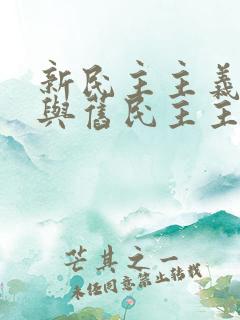 新民主主義
與舊民主主
芒其之一
未经同意禁止转载